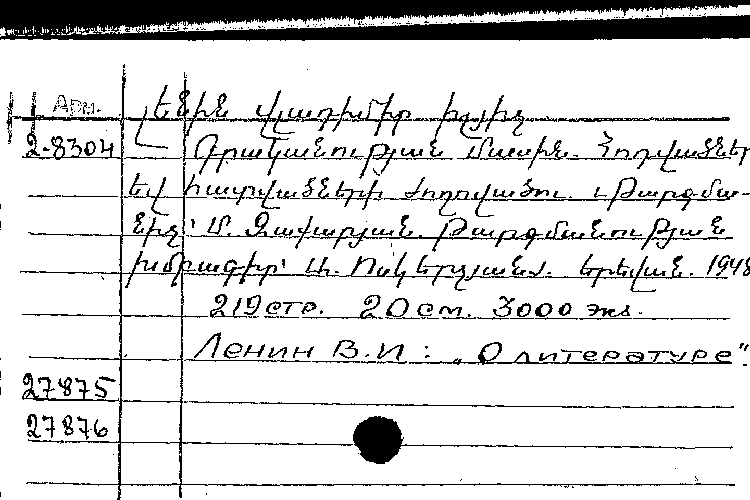 Арм. Լենին Վլադիմիր Իլյիչ
2-8304 Գրականության մասին. Հոդվածներ
եվ հատվածների ժողովածու. Թարգմա-
նիչ՝ Մ. Զափարյան. Թարգմանության
խմբագիր՝ Ա. Ոսկերչյան. Երեվան. 1948
219 стр. 20 см. 3000 экз.
Ленин В.И: „О литературе".
27875
27876